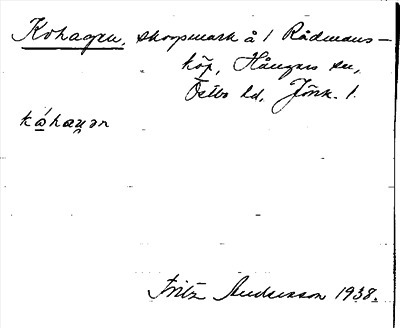 Kohagen, skogsmark å 1 Rådmans-
köp, Hångers sn,
Östbo hd, Jönk. l.
kóhagən
Fritz Andersson 1938.